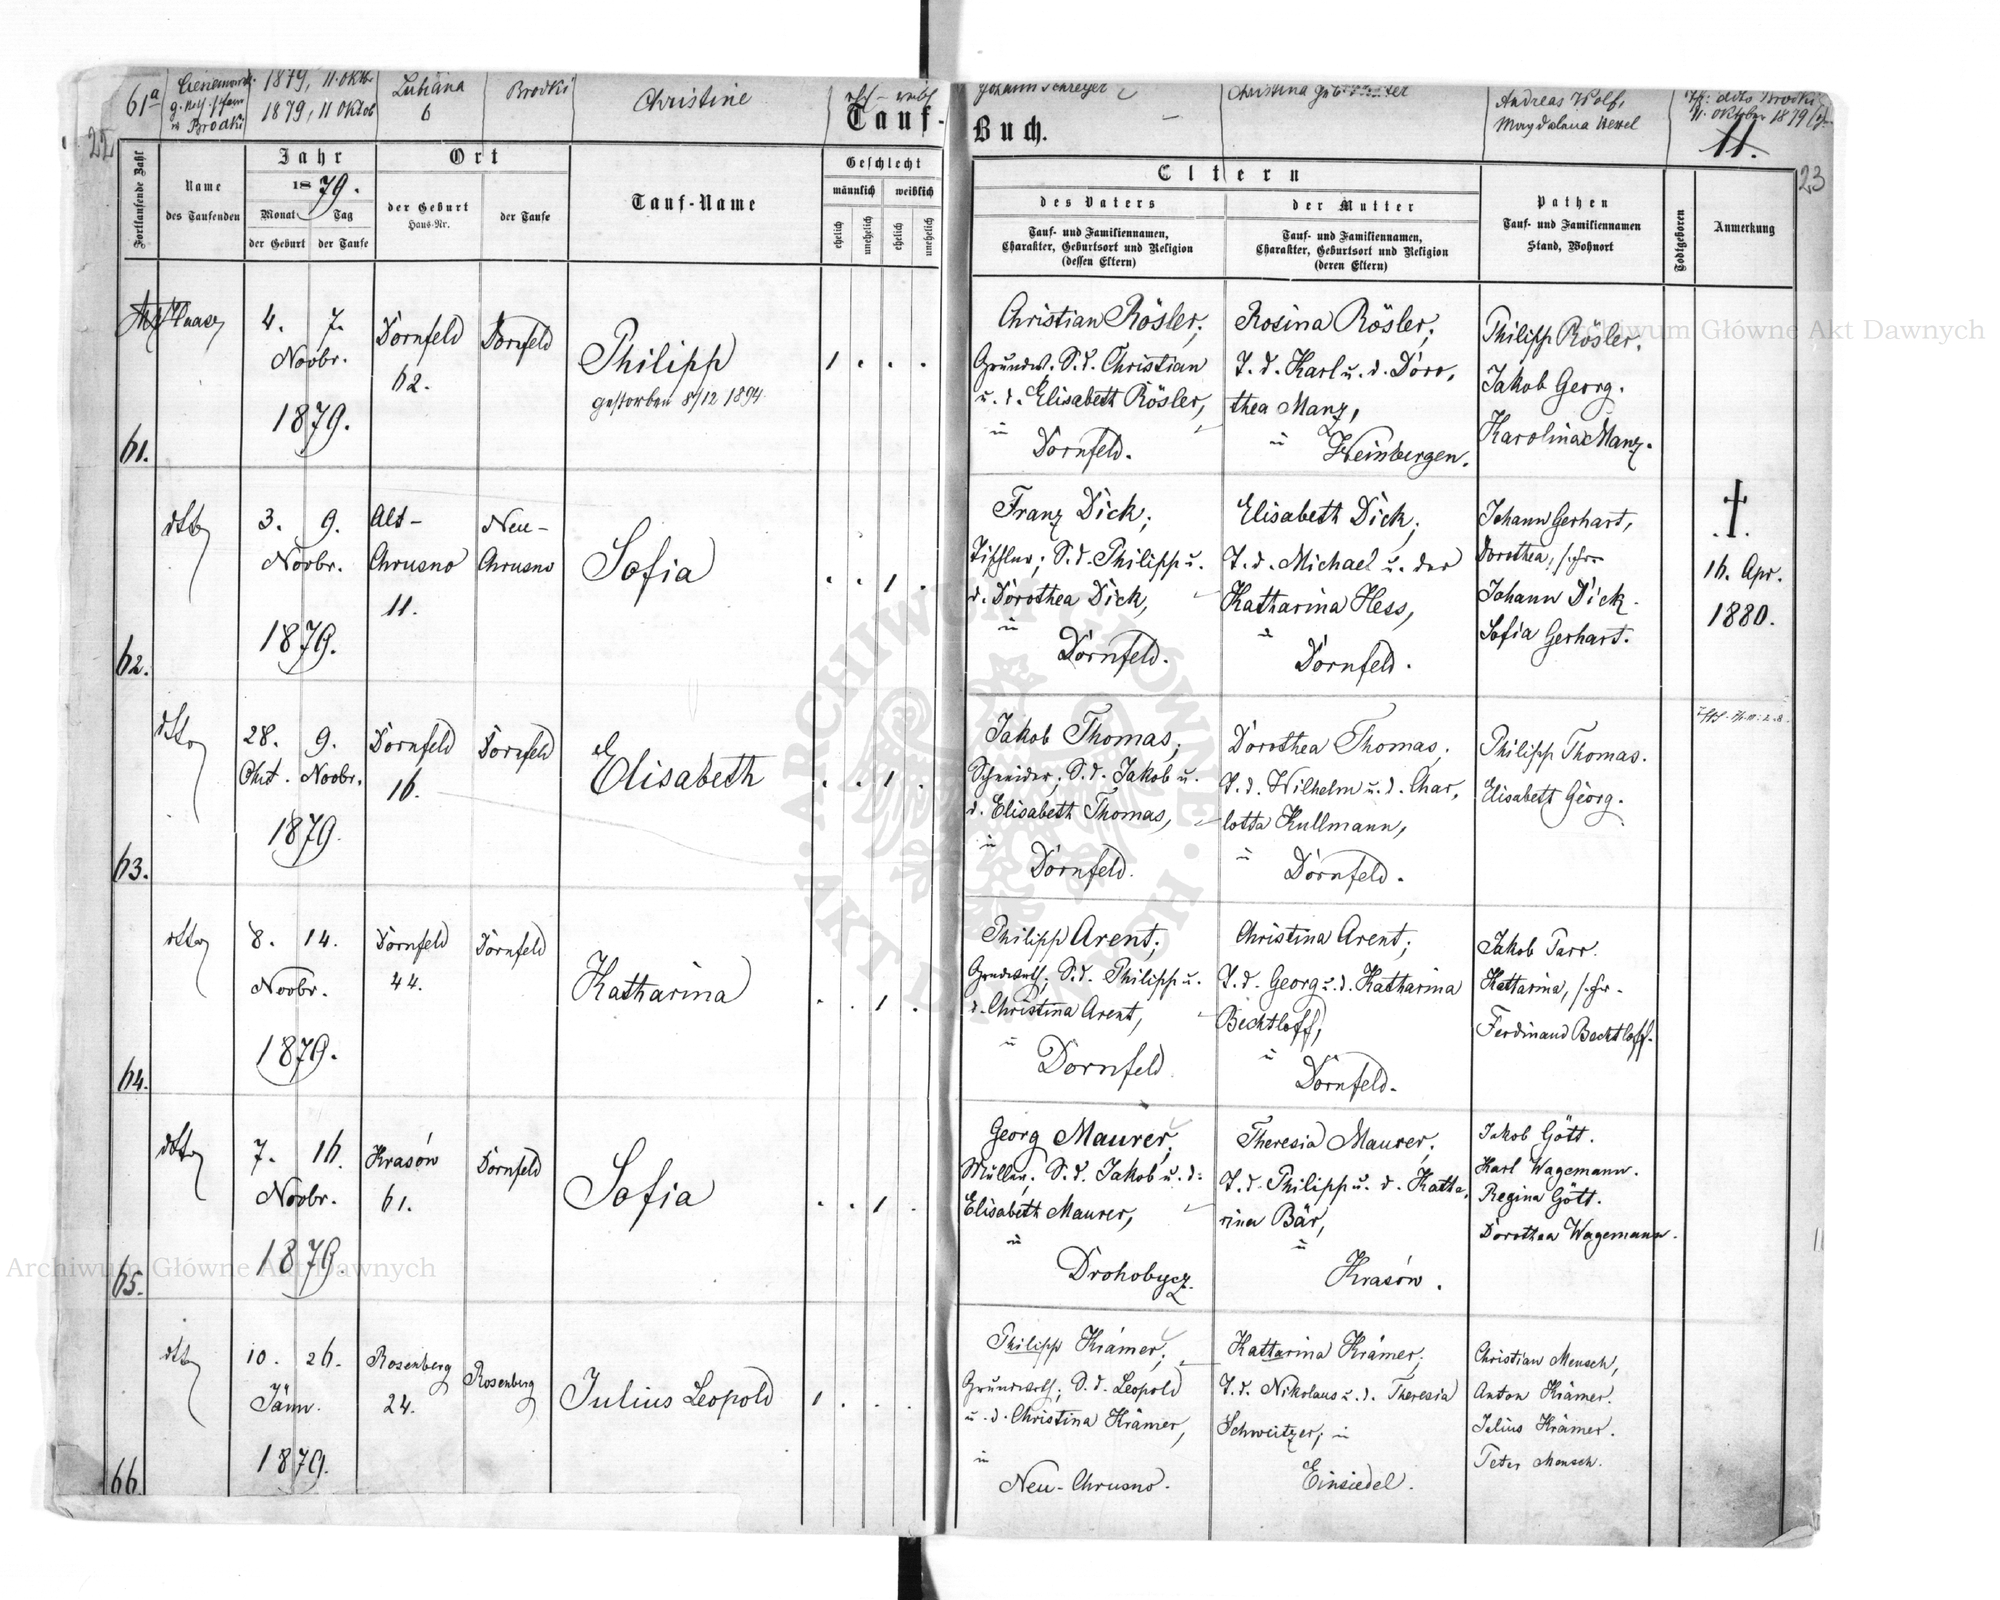 61a
1879, 11. Oktbr
Luhäna
Brodki
Christine
1879, 11 Oktob
6
Brodki
Johann Schreyer
Christina
Andreas Wolf,
Magdalena Wexel
dito Brodki
11. Oktober 1879
22
Tauf-
Buch.
11.
23
Fortlaufende Zahl
Name
des Taufenden
Jahr
1879.
Monat
Tag
der Geburt
der Taufe
Ort
der Geburt
Haus-Nr.
der Taufe
Tauf-Name
Geschlecht
männlich
weiblich
ehelich
unehelich
ehelich
unehelich
Eltern
des Vaters
Tauf- und Familiennamen,
Charakter, Geburtsort und Religion
(dessen Eltern)
der Mutter
Tauf- und Familiennamen,
Charakter, Geburtsort und Religion
(deren Eltern)
Pathen
Tauf- und Familiennamen
Stand, Wohnort
Todtgeboren
Anmerkung
61.
4. 7.
Novbr.
1879.
Dornfeld
62.
Dornfeld
Philipp
gestorben 8/12 1894
1 . . .
Christian Rösler;
Grundw. S. d. Christian
u. d. Elisabeth Rösler,
in
Dornfeld.
Rosina Rösler;
T. d. Karl u. d. Doro,
thea Manz,
in
Weinbergen.
Philipp Rösler.
Jakob Georg.
Karolina Manz.
62.
dtto
3. 9.
Novbr.
1879.
Alt-
Chrusno
11.
Neu-
Chrusno
Sofia
. . 1 .
Franz Dick;
Tischler; S. d. Philipp u.
d. Dorothea Dick,
in
Dornfeld.
Elisabeth Dick;
T. d. Michael u. der
Katharina Hess,
in
Dornfeld.
Johann Gerhart,
Dorothea,
Johann Dick.
Sofia Gerhart.
†
16. Apr.
1880.
63.
dtto
28. 9.
Okt. Novbr.
1879.
Dornfeld
16.
Dornfeld
Elisabeth
. . 1 .
Jakob Thomas;
Schneider; S. d. Jakob u.
d. Elisabeth Thomas,
in
Dornfeld.
Dorothea Thomas;
T. d. Wilhelm u. d. Char,
lotta Kullmann,
in
Dornfeld.
Philipp Thomas.
Elisabeth Georg.
64.
dtto
8. 14.
Novbr.
1879.
Dornfeld
44.
Dornfeld
Katharina
. . 1 .
Philipp Arent;
Grundwirth; S. d. Philipp u.
d. Christina Arent,
in
Dornfeld
Christina Arent;
T. d. Georg u. d. Katharina
Bechtloff,
in
Dornfeld.
Jakob Parr.
Katharina,
Ferdinand Bechtloff.
65.
dtto
7. 16.
Novbr.
1879.
Krasów
61.
Dornfeld
Sofia
. . 1 .
Georg Maurer;
Müller; S. d. Jakob u. d.
Elisabeth Maurer,
in
Drohobycz.
Theresia Maurer;
T. d. Philipp u. d. Katha,
rina Bär,
in
Krasów.
Jakob Gött.
Karl Wagemann.
Regina Gött.
Dorothea Wagemann.
66
dtto
10. 26.
Jänn.
1879.
Rosenberg
24.
Rosenberg
Julius Leopold
1 . . .
Philipp Krämer;
Grundwirth; S. d. Leopold
u. d. Christina Krämer,
in
Neu-Chrusno.
Katharina Krämer;
T. d. Nikolaus u. d. Theresia
Schweitzer, in
Einsiedel.
Christian Mensch,
Anton Krämer.
Julius Krämer.
Peter Mensch.
Archiwum Główne Akt Dawnych
Archiwum Główne Akt Dawnych